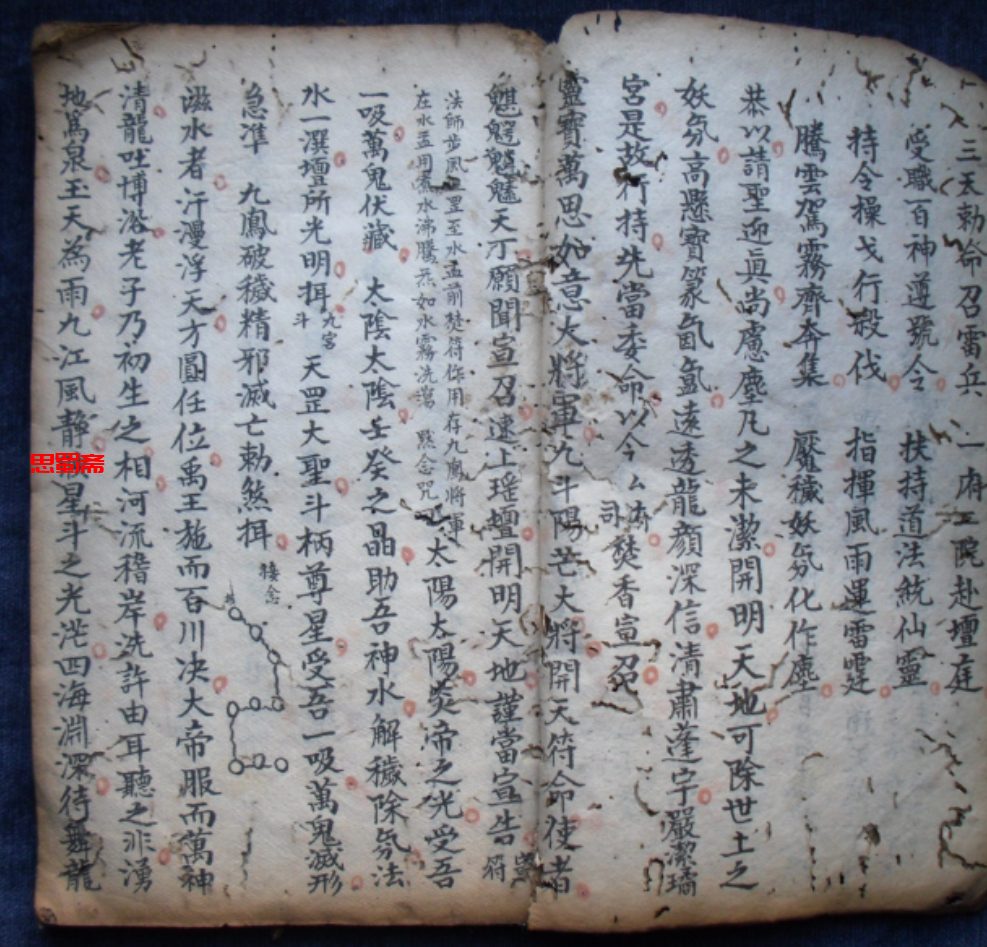 三天勅命召雷兵　一府二院赴壇庭
受職百神遵號令　扶持道法統仙靈
持令操戈行殺伐　指揮風雨運雷霆
騰雲駕霧齊奔集　魘穢妖氛化作塵
恭以請聖迎眞尚慮塵凡之未潔開明天地可除世土之
妖氛高懸寶篆氤氳遠透龍顏深信清肅蓬宇嚴潔璚
宮是故行持先當委命以今厶府司焚香宣召
靈寶萬思如意大將軍九斗陽芒大將開天符命使者
天丁願聞宣召速上瑶壇開明天地謹當宣告 符
法師步風罡至水盂前焚符作用存九鳳將軍
在水盂用煮水沸騰炁如水霧洗瀉 默念咒
太陽太陽炎帝之光受吾
一吸萬鬼伏藏　太陰太陰壬癸之晶助吾神水解穢除氛法
水一潠壇所光明揖 九宮斗 天罡大聖斗柄尊星受吾一吸萬鬼滅形
急準　九鳳破穢精邪滅亡勅煞揖 接念
滋水者汗漫浮天方圓任位禹王施而百川决大帝服而萬神
清龍吐博浴老子乃初生之相河流稽岸洗許由耳聽之非湧
地萬泉玉天為雨九江風静星斗之光茫四海淵深待舞龍
思蜀斋